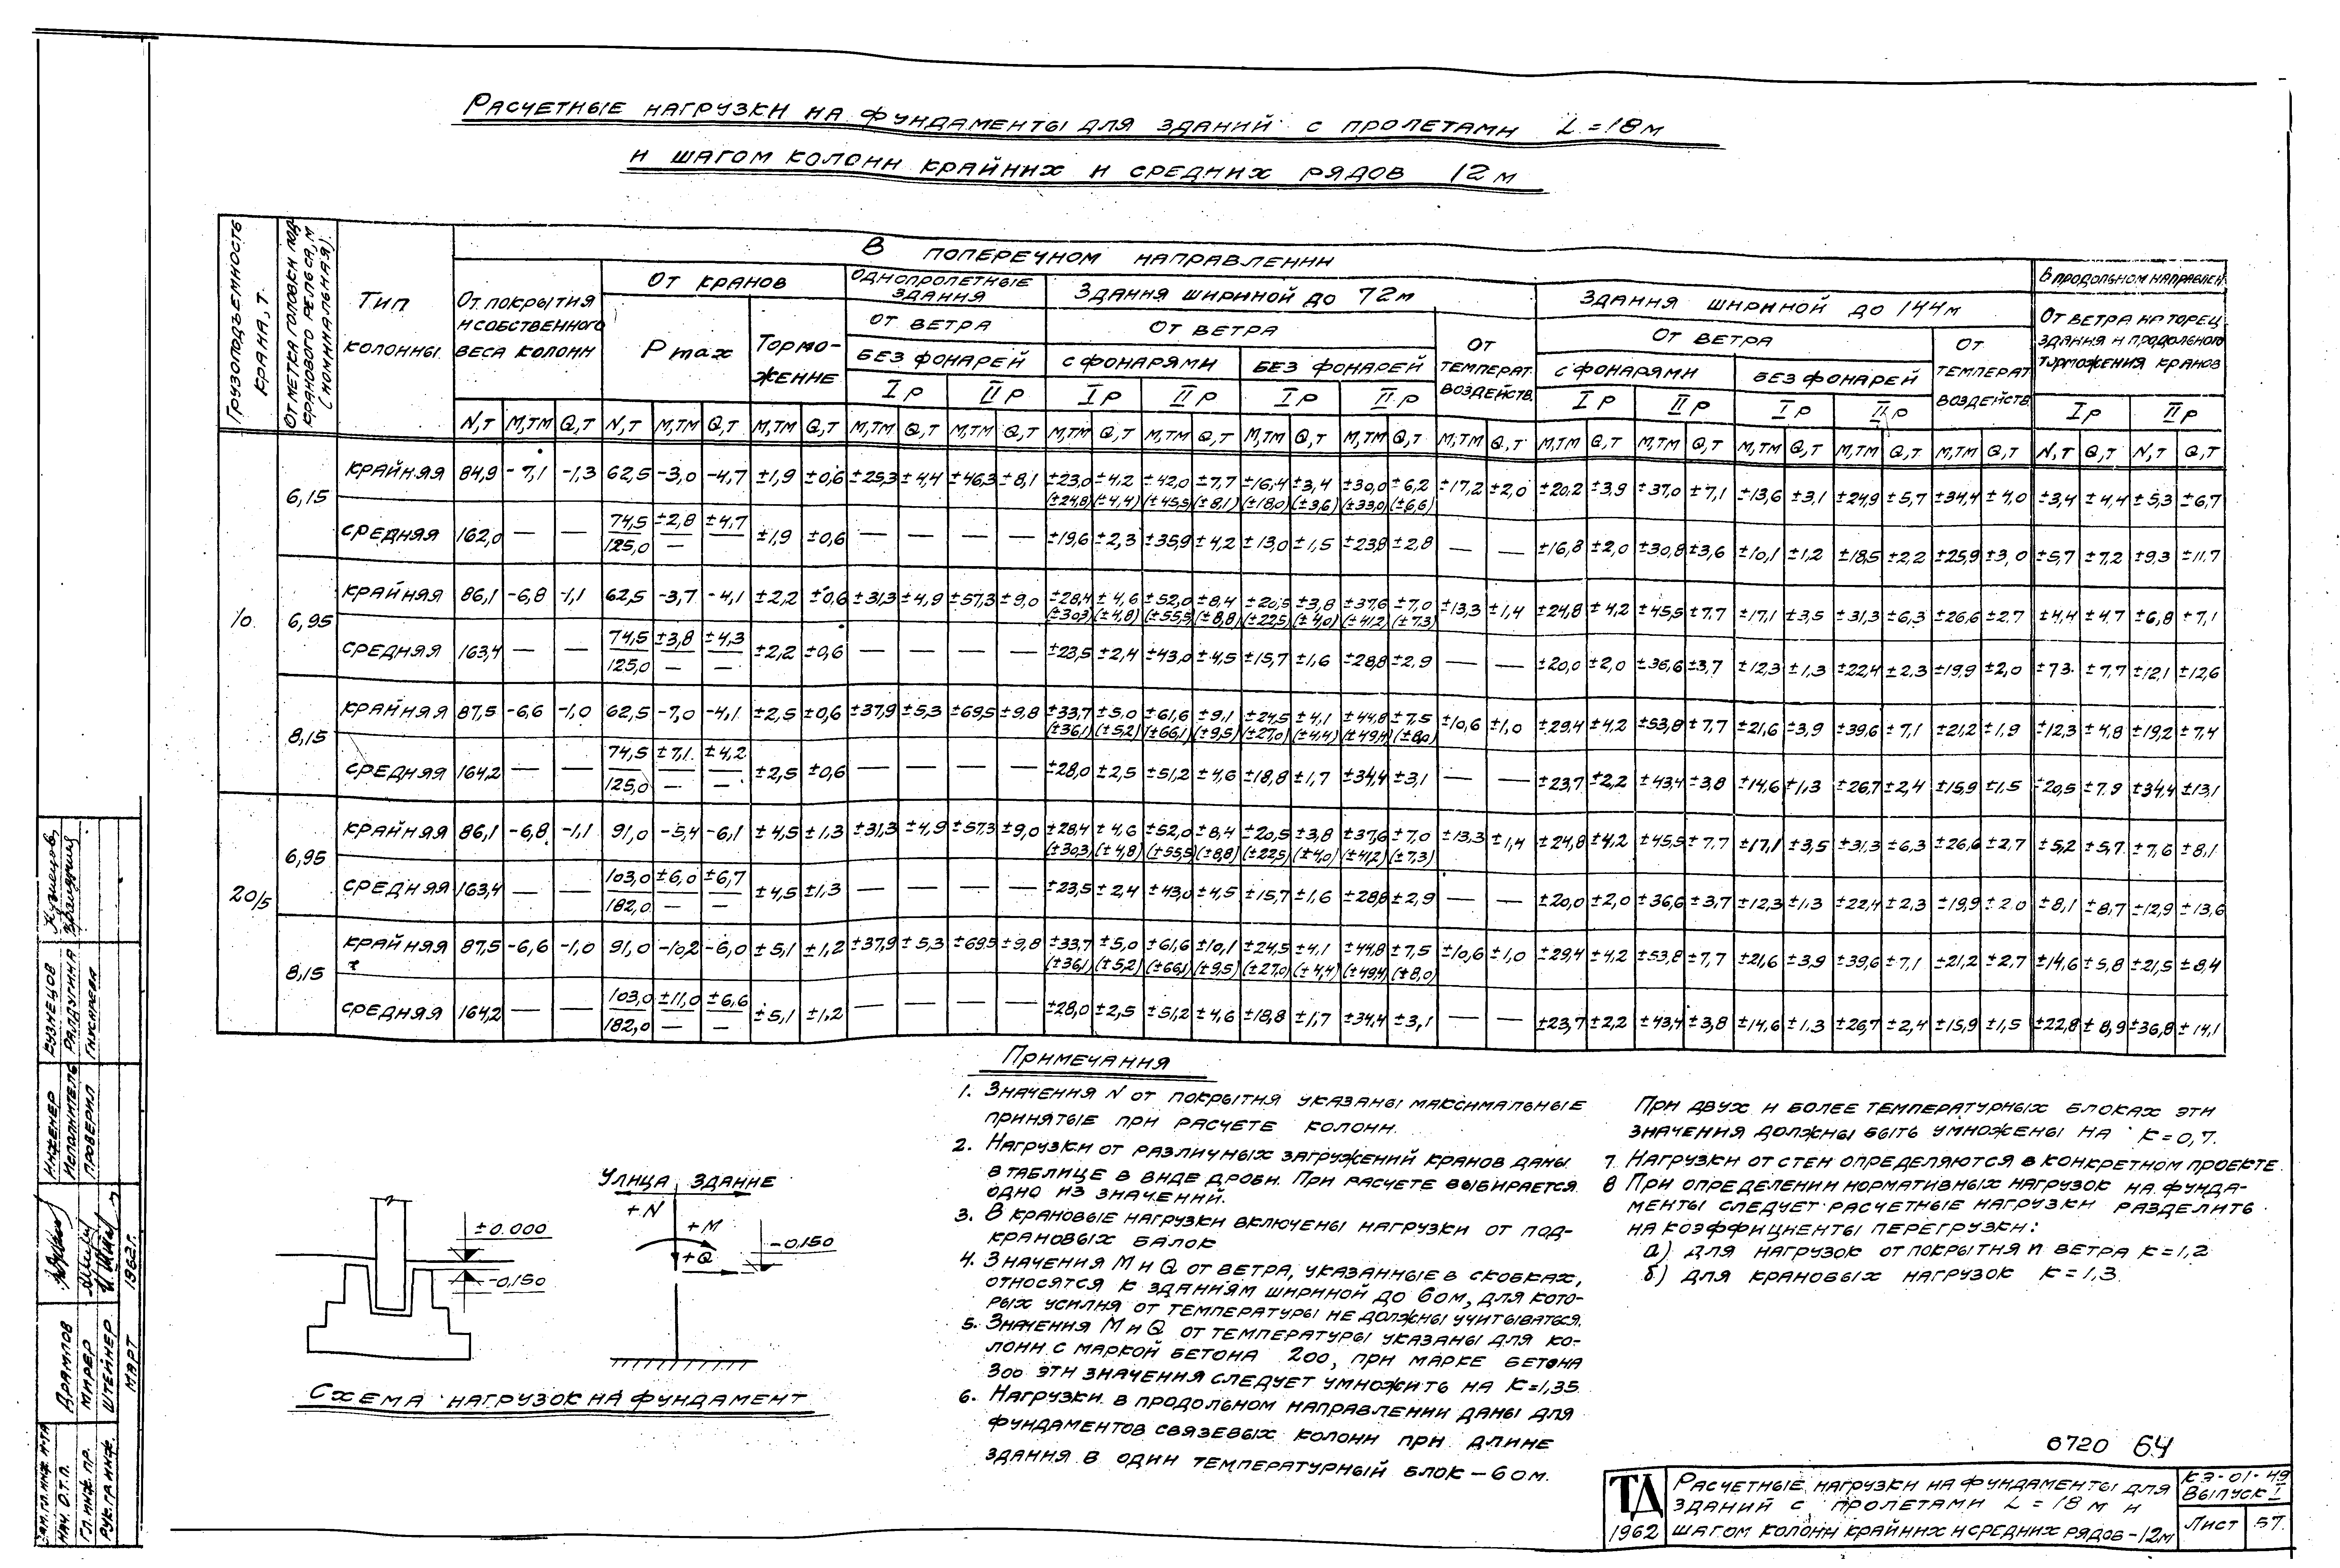 Расчетные нагрузки на фундаменты для зданий с пролетами L=18м
и шагом колонн крайних и средних рядов 12м
Грузоподъемность крана, т.
Отметка головки подкранового рельса, м (номинальная).
Тип колонны.
В поперечном направлении
В продольном направлен.
От покрытия и собственного веса колонн
От кранов
Однопролетные здания
Здания шириной до 72м
Здания шириной до 144м
От ветра на торец здания и продольного торможения кранов
Pmax
Торможение
От ветра
От ветра
От температ. воздейств.
От ветра
От температ. воздейств.
без фонарей
с фонарями
без фонарей
с фонарями
без фонарей
I р II р I р II р I р II р I р II р I р II р I р II р
N,т М,тм Q,т N,т М,тм Q,т М,тм Q,т М,тм Q,т М,тм Q,т М,тм Q,т М,тм Q,т М,тм Q,т М,тм Q,т М,тм Q,т М,тм Q,т М,тм Q,т М,тм Q,т М,тм Q,т М,тм Q,т N,т Q,т N,т Q,т
10.
6,15
крайняя 84,9 -7,1 -1,3 62,5 -3,0 -4,7 ±1,9 ±0,6 ±25,3 ±4,4 ±46,3 ±8,1 ±23,0 ±4,2 ±42,0 ±7,7 ±16,4 ±3,4 ±30,0 ±6,2 ±17,2 ±2,0 ±20,2 ±3,9 ±37,0 ±7,1 ±13,6 ±3,1 ±24,9 ±5,7 ±34,4 ±4,0 ±3,4 ±4,4 ±5,3 ±6,7
(±24,8) (±4,4) (±45,5) (±8,1) (±18,0) (±3,6) (±33,0) (±6,6)
средняя 162,0 — — 74,5 ±2,8 ±4,7 ±1,9 ±0,6 — — — — ±19,6 ±2,3 ±35,9 ±4,2 ±13,0 ±1,5 ±23,8 ±2,8 — — ±16,8 ±2,0 ±30,8 ±3,6 ±10,1 ±1,2 ±18,5 ±2,2 ±25,9 ±3,0 ±5,7 ±7,2 ±9,3 ±11,7
125,0 —
6,95
крайняя 86,1 -6,8 -1,1 62,5 -3,7 -4,1 ±2,2 ±0,6 ±31,3 ±4,9 ±57,3 ±9,0 ±28,4 ±4,6 ±52,0 ±8,4 ±20,5 ±3,8 ±37,6 ±7,0 ±13,3 ±1,4 ±24,8 ±4,2 ±45,5 ±7,7 ±17,1 ±3,5 ±31,3 ±6,3 ±26,6 ±2,7 ±4,4 ±4,7 ±6,8 ±7,1
(±30,3) (±4,8) (±55,5) (±8,8) (±22,5) (±4,0) (±41,2) (±7,3)
средняя 163,4 — — 74,5 ±3,8 ±4,3 ±2,2 ±0,6 — — — — ±23,5 ±2,4 ±43,0 ±4,5 ±15,7 ±1,6 ±28,8 ±2,9 — — ±20,0 ±2,0 ±36,6 ±3,7 ±12,3 ±1,3 ±22,4 ±2,3 ±19,9 ±2,0 ±7,3 ±7,7 ±12,1 ±12,6
125,0 — —
8,15
крайняя 87,5 -6,6 -1,0 62,5 -7,0 -4,1 ±2,5 ±0,6 ±37,9 ±5,3 ±69,5 ±9,8 ±33,7 ±5,0 ±61,6 ±9,1 ±24,5 ±4,1 ±44,8 ±7,5 ±10,6 ±1,0 ±29,4 ±4,2 ±53,8 ±7,7 ±21,6 ±3,9 ±39,6 ±7,1 ±21,2 ±1,9 ±12,3 ±4,8 ±19,2 ±7,4
(±36,1) (±5,2) (±66,1) (±9,5) (±27,0) (±4,4) (±49,4) (±8,0)
средняя 164,2 — — 74,5 ±7,1 ±4,2 ±2,5 ±0,6 — — — — ±28,0 ±2,5 ±51,2 ±4,6 ±18,8 ±1,7 ±34,4 ±3,1 — — ±23,7 ±2,2 ±43,4 ±3,8 ±14,6 ±1,3 ±26,7 ±2,4 ±15,9 ±1,5 ±20,5 ±7,9 ±34,4 ±13,1
125,0 — —
20/5
6,95
крайняя 86,1 -6,8 -1,1 91,0 -5,4 -6,1 ±4,5 ±1,3 ±31,3 ±4,9 ±57,3 ±9,0 ±28,4 ±4,6 ±52,0 ±8,4 ±20,5 ±3,8 ±37,6 ±7,0 ±13,3 ±1,4 ±24,8 ±4,2 ±45,5 ±7,7 ±17,1 ±3,5 ±31,3 ±6,3 ±26,6 ±2,7 ±5,2 ±5,7 ±7,6 ±8,1
(±30,3) (±4,8) (±55,5) (±8,8) (±22,5) (±4,0) (±41,2) (±7,3)
средняя 163,4 — — 103,0 ±6,0 ±6,7 ±4,5 ±1,3 — — — — ±23,5 ±2,4 ±43,0 ±4,5 ±15,7 ±1,6 ±28,8 ±2,9 — — ±20,0 ±2,0 ±36,6 ±3,7 ±12,3 ±1,3 ±22,4 ±2,3 ±19,9 ±2,0 ±8,1 ±8,7 ±12,9 ±13,6
182,0 — —
8,15
крайняя 87,5 -6,6 -1,0 91,0 -10,2 -6,0 ±5,1 ±1,2 ±37,9 ±5,3 ±69,5 ±9,8 ±33,7 ±5,0 ±61,6 ±10,1 ±24,5 ±4,1 ±44,8 ±7,5 ±10,6 ±1,0 ±29,4 ±4,2 ±53,8 ±7,7 ±21,6 ±3,9 ±39,6 ±7,1 ±21,2 ±2,7 ±14,6 ±5,8 ±21,5 ±8,4
(±36,1) (±5,2) (±66,1) (±9,5) (±27,0) (±4,4) (±49,4) (±8,0)
средняя 164,2 — — 103,0 ±11,0 ±6,6 ±5,1 ±1,2 — — — — ±28,0 ±2,5 ±51,2 ±4,6 ±18,8 ±1,7 ±34,4 ±3,1 — — ±23,7 ±2,2 ±43,4 ±3,8 ±14,6 ±1,3 ±26,7 ±2,4 ±15,9 ±1,5 ±22,8 ±8,9 ±36,8 ±14,1
182,0 — —
Примечания
1. Значения N от покрытия указаны максимальные
принятые при расчете колонн.
2. Нагрузки от различных загружений кранов даны
в таблице в виде дроби. При расчете выбирается
одно из значений.
3. В крановые нагрузки включены нагрузки от под-
крановых балок
4. Значения М и Q от ветра, указанные в скобках,
относятся к зданиям шириной до 60м, для кото-
рых усилия от температуры не должны учитываться.
5. Значения М и Q от температуры указаны для ко-
лонн с маркой бетона 200, при марке бетона
300 эти значения следует умножить на к=1,35
6. Нагрузки в продольном направлении даны для
фундаментов связевых колонн при длине
здания в один температурный блок – 60м.
При двух и более температурных блоках эти
значения должны быть умножены на к=0,7.
7. Нагрузки от стен определяются в конкретном проекте.
8 При определении нормативных нагрузок на фунда-
менты следует расчетные нагрузки разделить
на коэффициенты перегрузки:
а) для нагрузок от покрытия и ветра к=1,2
б) для крановых нагрузок к=1,3.
±0.000
-0,150
Улица Здание
+N
+М
+Q
-0,150
Схема нагрузок на фундамент
6720 64
ТД
1962
Расчетные нагрузки на фундаменты для
зданий с пролетами L=18м и
шагом колонн крайних и средних рядов-12м
КЭ-01-49
Выпуск I
Лист 57.
Зам.гл.инж. ин-та
Нач. О.Т.П. Арампов
Гл. инж. пр. Мирер
Рук.гр.инж. Штейнер
Март 1962г.
Инженер Кузнецов
Исполнитель Ралдугина
Проверил